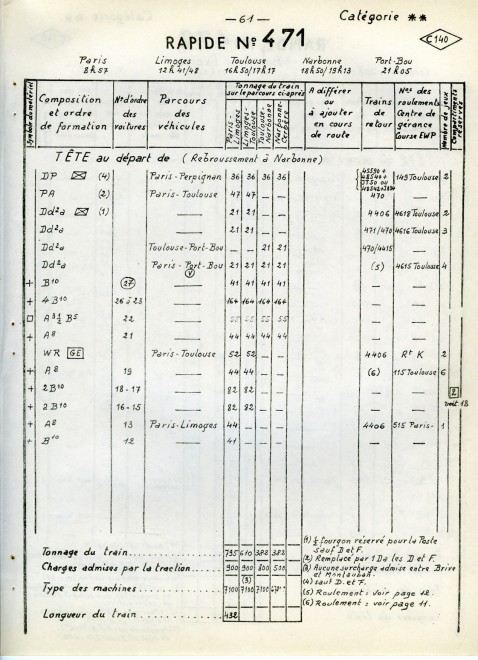 — 61 —
Catégorie **
RAPIDE N° 471
C 140
Paris Limoges Toulouse Narbonne Port-Bou
8h57 12h41/48 16h50/17h17 18h50/19h13 21h05
Symbole du matériel
Composition et ordre de formation
N°s d'ordre des voitures
Parcours des véhicules
Tonnage du train sur le parcours ci-après
Paris-Limoges
Limoges-Toulouse
Toulouse-Narbonne
Narbonne-Cerbère
A différer ou à ajouter en cours de route
Trains de retour
N°s des roulements Centre de gérance Course EWP
Nombre de jeux
Compartiments réservés
TÊTE au départ de (Rebroussement à Narbonne)
DP (4) Paris-Perpignan 36 36 36 36 149 Toulouse 2
PA (2) Paris-Toulouse 47 47 — — 470 —
Dd²a (1) — 21 21 — — 4406 4618 Toulouse 2
Dd²a — 21 21 — — 471/470 4616 Toulouse 3
Dd²a Toulouse-Port-Bou 21 21 470/4415
Dd²a Paris-Port-Bou 21 21 21 21 (5) 4615 Toulouse 4
+ B10 27 — 41 41 41 41 — —
+ 4 B10 26 à 23 — 164 164 164 164 — —
A 3½ B5 22 — 55 55 55 55 — —
+ A8 21 — 44 44 44 44 — —
WR GE Paris-Toulouse 52 52 — — 4406 Rt K 2
+ A8 19 — 44 44 — — (6) 115 Toulouse 6
+ 2B10 18-17 — 82 82 — — — — 2
+ 2B10 16-15 — 82 82 — — — — voit. 18
+ A8 13 Paris-Limoges 44 — — — 4406 515 Paris- 1
+ B10 12 — 41 — — — — —
Tonnage du train 795 610 382 382
Charges admises par la traction 900 900 800 500
(3)
Type des machines 7100 7100 7100
Longueur du train 432
(1) ½ fourgon réservé pour la Poste
sauf D et F.
(2) Remplacé par 1 Da les D et F.
(3) Aucune surcharge admise entre Brive
et Montauban.
(4) sauf D. et F.
(5) Roulement: voir page 12.
(6) Roulement: voir page 11.